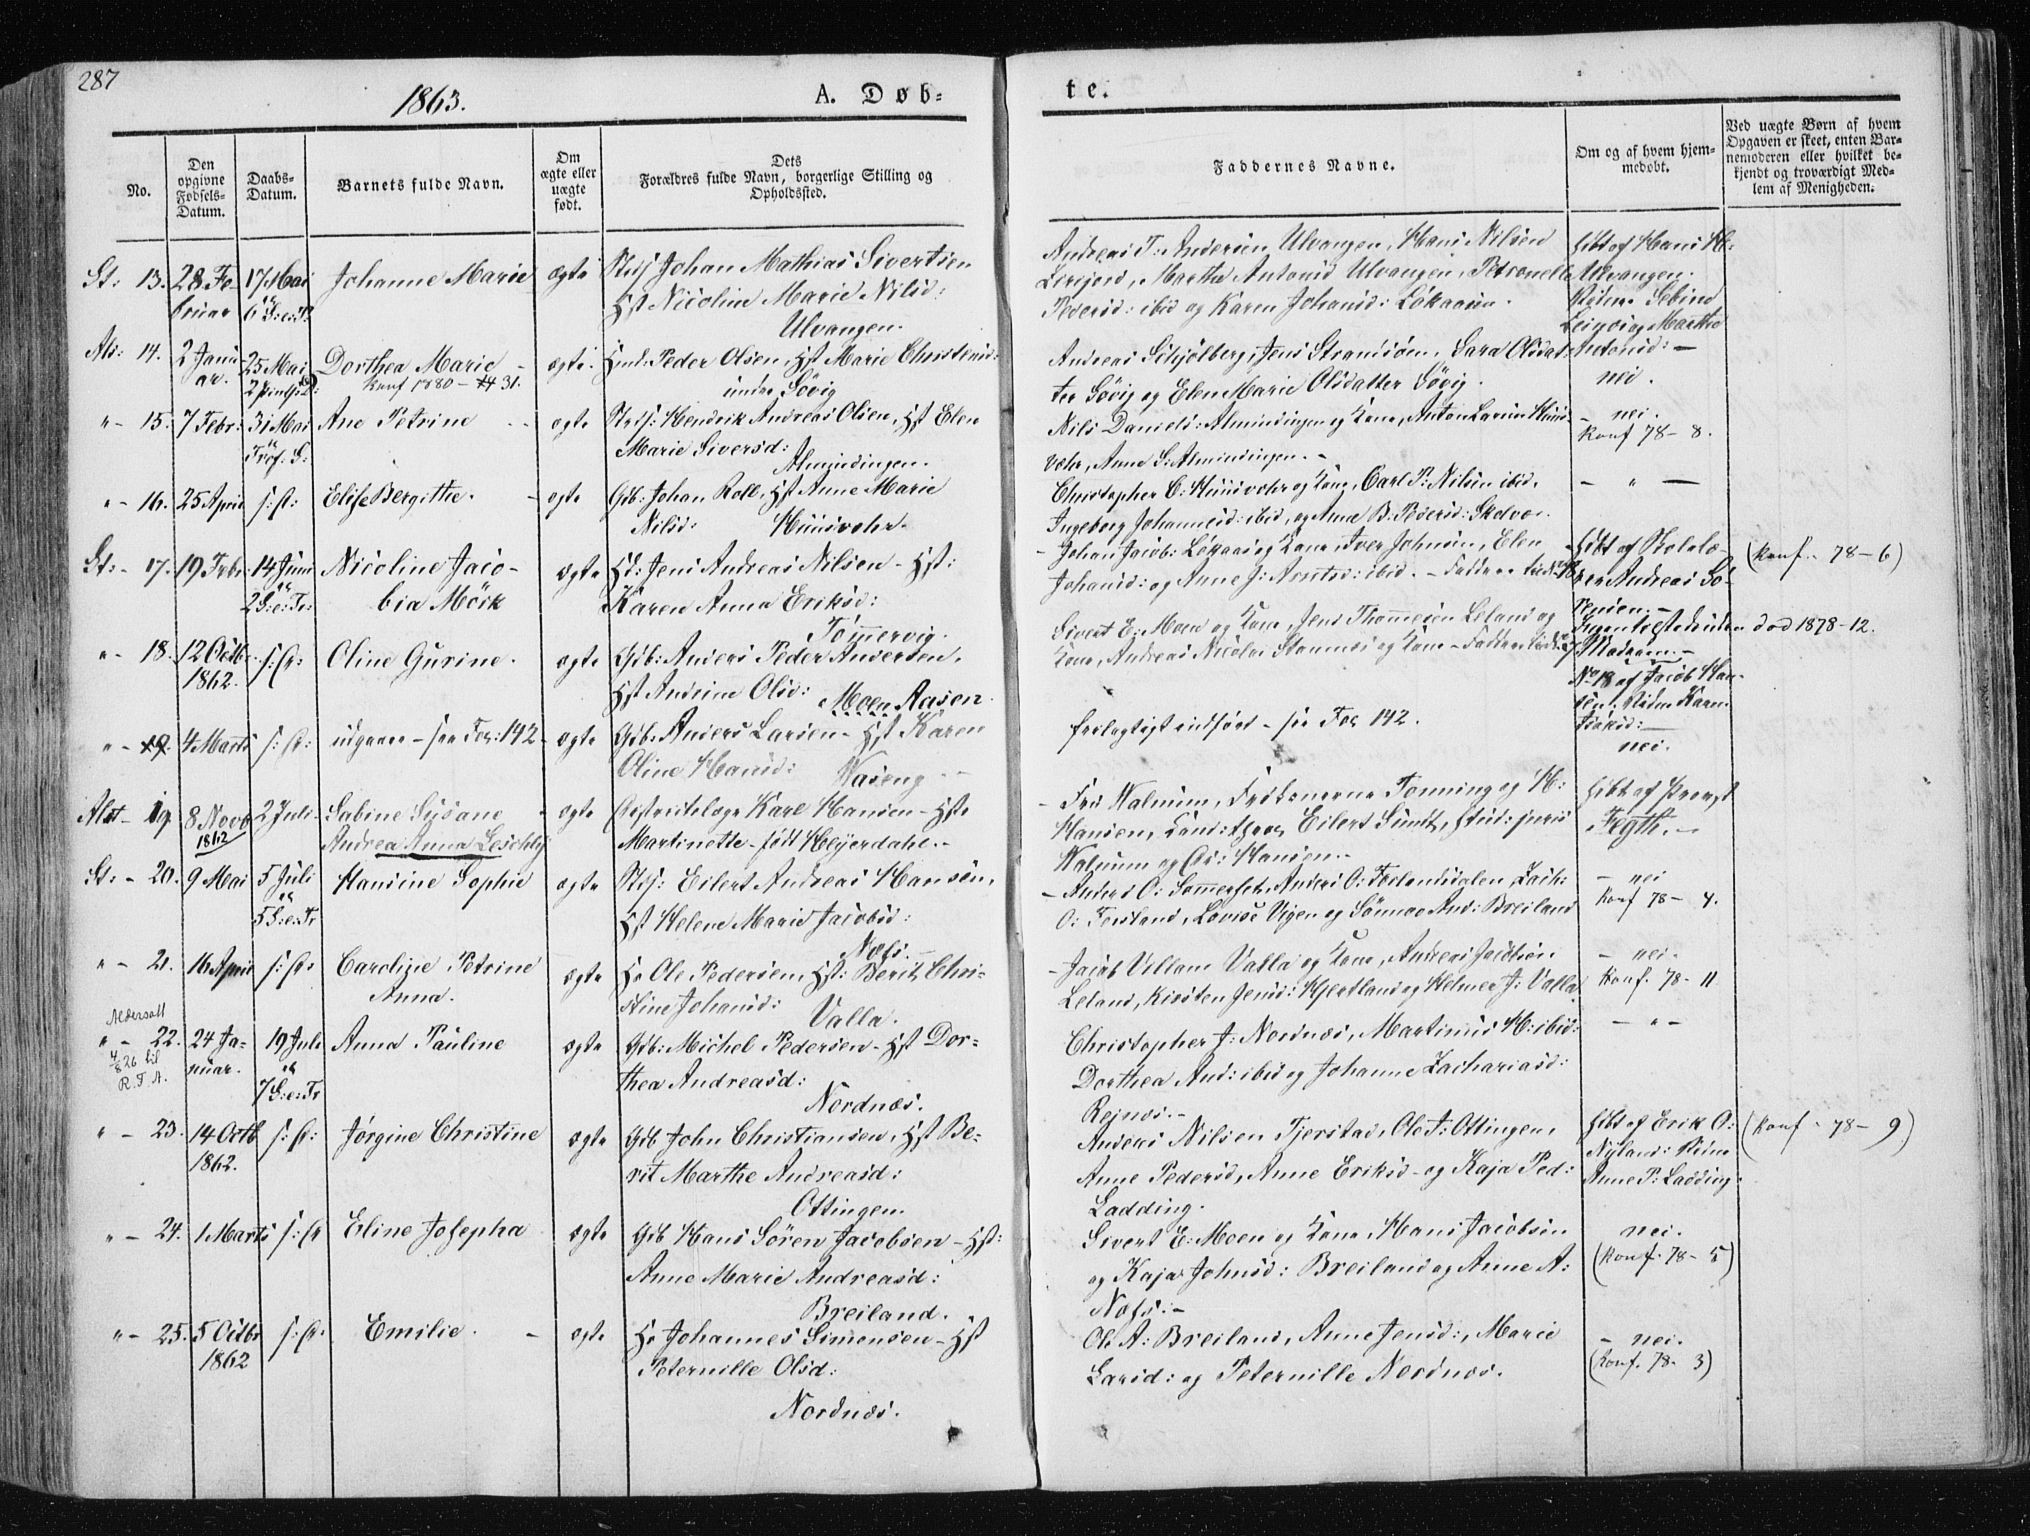 287
1863.
A. Døb-
te.
No.
Den opgivne Fødsels-Datum.
Daabs-Datum.
Barnets fulde Navn.
Om ægte eller uægte født.
Dets Forældres fulde Navn, borgerlige Stilling og Opholdssted.
Faddernes Navne.
Om og af hvem hjem-medøbt.
Ved uægte Børn af hvem Opgaven er skeet, enten Bar-nemoderen eller hvilket be-kjendt og troværdigt Med-lem af Menigheden.
St: 13. 28 Fe- 17 Mai Johanne Marie ægte Johan Mathias Sivertsen
bruar 6 S: e: P. Hst Nicoline Marie Nilsd:
Ulvangen.
Andreas T: Andersen Ulvangen, Hans Nilsen
Leresjord, Marthe Antonsd Ulvangen, Petronelle
Pedersd: ibid og Karen Johansd: Løkaasen.
hibt af Hans
Ulvangen.
Marthe
Antonsd: –
Als: 14. 2 Janu- 25 Mai Dorthea Marie – ægte. Peder Olsen, Hst Marie Christensd:
ar. 2 Pintsd: Konf 1880 – 31. Søvig
Andreas Schjølberg, Jens Strandsøen, Sara Olsdat-
ter Søvig og Elen Marie Olsdatter Søvig.
nei.
" – 15. 7 Febr: 31 Mai Ane Petrine ægte Hendrik Andreas Olsen, Hst Elen
Tref. S: Marie Siversd:
Almindingen.
Nils Daniels: Almindingen og Kone, Anton Larsen Huus-
væhr, Anne S: Almindingen. –
– nei.
Konf 78 – 8.
" – 16. 25 April s: D: Elise Bergithe. – ægte Gdb: Johan Roll, Hst Anne Marie
Nilsd: Huusvæhr.
Christopher C: Huusvæhr og Kone, Carl P: Nilsen ibid.
Ingeborg Johannesd: ibid, og Anne B. Pedersd: Skolvæ.
– " –
St: – 17. 19 Febr: 14 Juni Nicoline Jaco- ægte Jens Andreas Nilsen – Hst:
2 S: e: Tr: bia Mørk Karen Anna Eriksd:
Tømmervig.
– Johan Jacob: Løkaas og Kone, Iver Johnsen, Elen
Johansd: og Anne J: ibid. –
hibt af Skolelæ-
rer Andreas Sø-
rensen. –
(Konf. 78 – 6)
" – 18. 12 Octb: s: D: Oline Gurine. ægte Gdb: Anders Peder Andersen,
1862. Hst Andrine Olsd: Moen Aasen.
Sivert E: Moen og Kone, Jens Thommesen Leland og
Kone, Andreas Nicolai Stamnes og Kone –
No 18 af Jacob Han-
sen. Karen
død 1878 – 12.
" – 19. 4 Marts s: D: udgaaer – see Fol: 142 – ægte Gdb: Anders Larsen – Hst Karen
Oline Hansd: Naseng
feilagtigt indført – see Fol. 142.
nei.
Alst – 19 8 Novb 2 Juli – Sabine Susane ægte Districtslæge Karl Hansen – Hst
1862 Andrea Anna Leschly Martinette – født Heijerdahl. –
– Fru Walnum, Frøkenerne Tønning og H:
Hansen, Cand: theol, Eilert Sundt, stud: juris
Walnum og Chr: Hansen. –
hibt af Provst
Fegth. –
St: – 20. 9 Mai 5 Juli Hansine Sophie ægte Eilert Andreas Hansen,
5 S: e: Tr Hst Helene Marie Jacobsd:
Næfs. –
– Anders O: Sommerset, Anders O: Forslandsdalen, Zach:
O: Forsland, Lovise Vigen og Sønnove And: Breiland
– nei
Konf 78 – 4.
" – 21. 16 April s: D: Caroline Petrine ægte Ole Pedersen, Hst: Berit Chri-
Anna. stine Johansd: Valla.
– Jacob Villum Valla og Kone, Andreas Jacobsen
Leland, Kirsten Jensd: Hjertland og Helmer J: Valla.
– nei.
Konf. 78 – 11
Aldersatt
4/8 26 til
R.T.A.
" – 22. 24 Ja- 19 Juli Anna Pauline ægte Gdb: Michel Pedersen – Hst Dor-
nuar. 7 S: e: Tr thea Andreasd:
Nordnæs.
Christopher J: Nordnæs, Martinus H: ibid:
Dorthea And: ibid og Johanne Zachariasd:
Rejnæs. –
– " –
" – 23. 14 Octb s: D: Jørgine Christine ægte Gdb John Christiansen, Hst Be-
1862. rit Marthe Andreasd:
Ottingen.
Anders Nilsen Tjerstad, Ole A: Ottingen,
Anne Pedersd, Anne Eriksd – og Kaja Ped:
Ladding.
hibt af Erik O:
Nyland:
Anne P: Ladding.
(Konf – 78 – 9)
" – 24. 1 Marts s: D: Eline Josepha ægte Gdb Hans Søren Jacobsen – Hst:
Anne Marie Andreasd:
Breiland.
Sivert E: Moen og Kone, Hans Jacobsen
og Kaja Johnsd: Breiland og Anne A:
Næfs. –
nei.
(Konf. 78 – 5)
" – 25. 5 Octbr s: D: Emilie. – ægte Johannes Simonsen – Hst
1862 Peternille Olsd:
Nordnæs.
Ole A: Breiland, Anne Jensd:, Marie
Larsd: og Peternille Nordnæs.
– nei.
(Konf. 78 – 3)